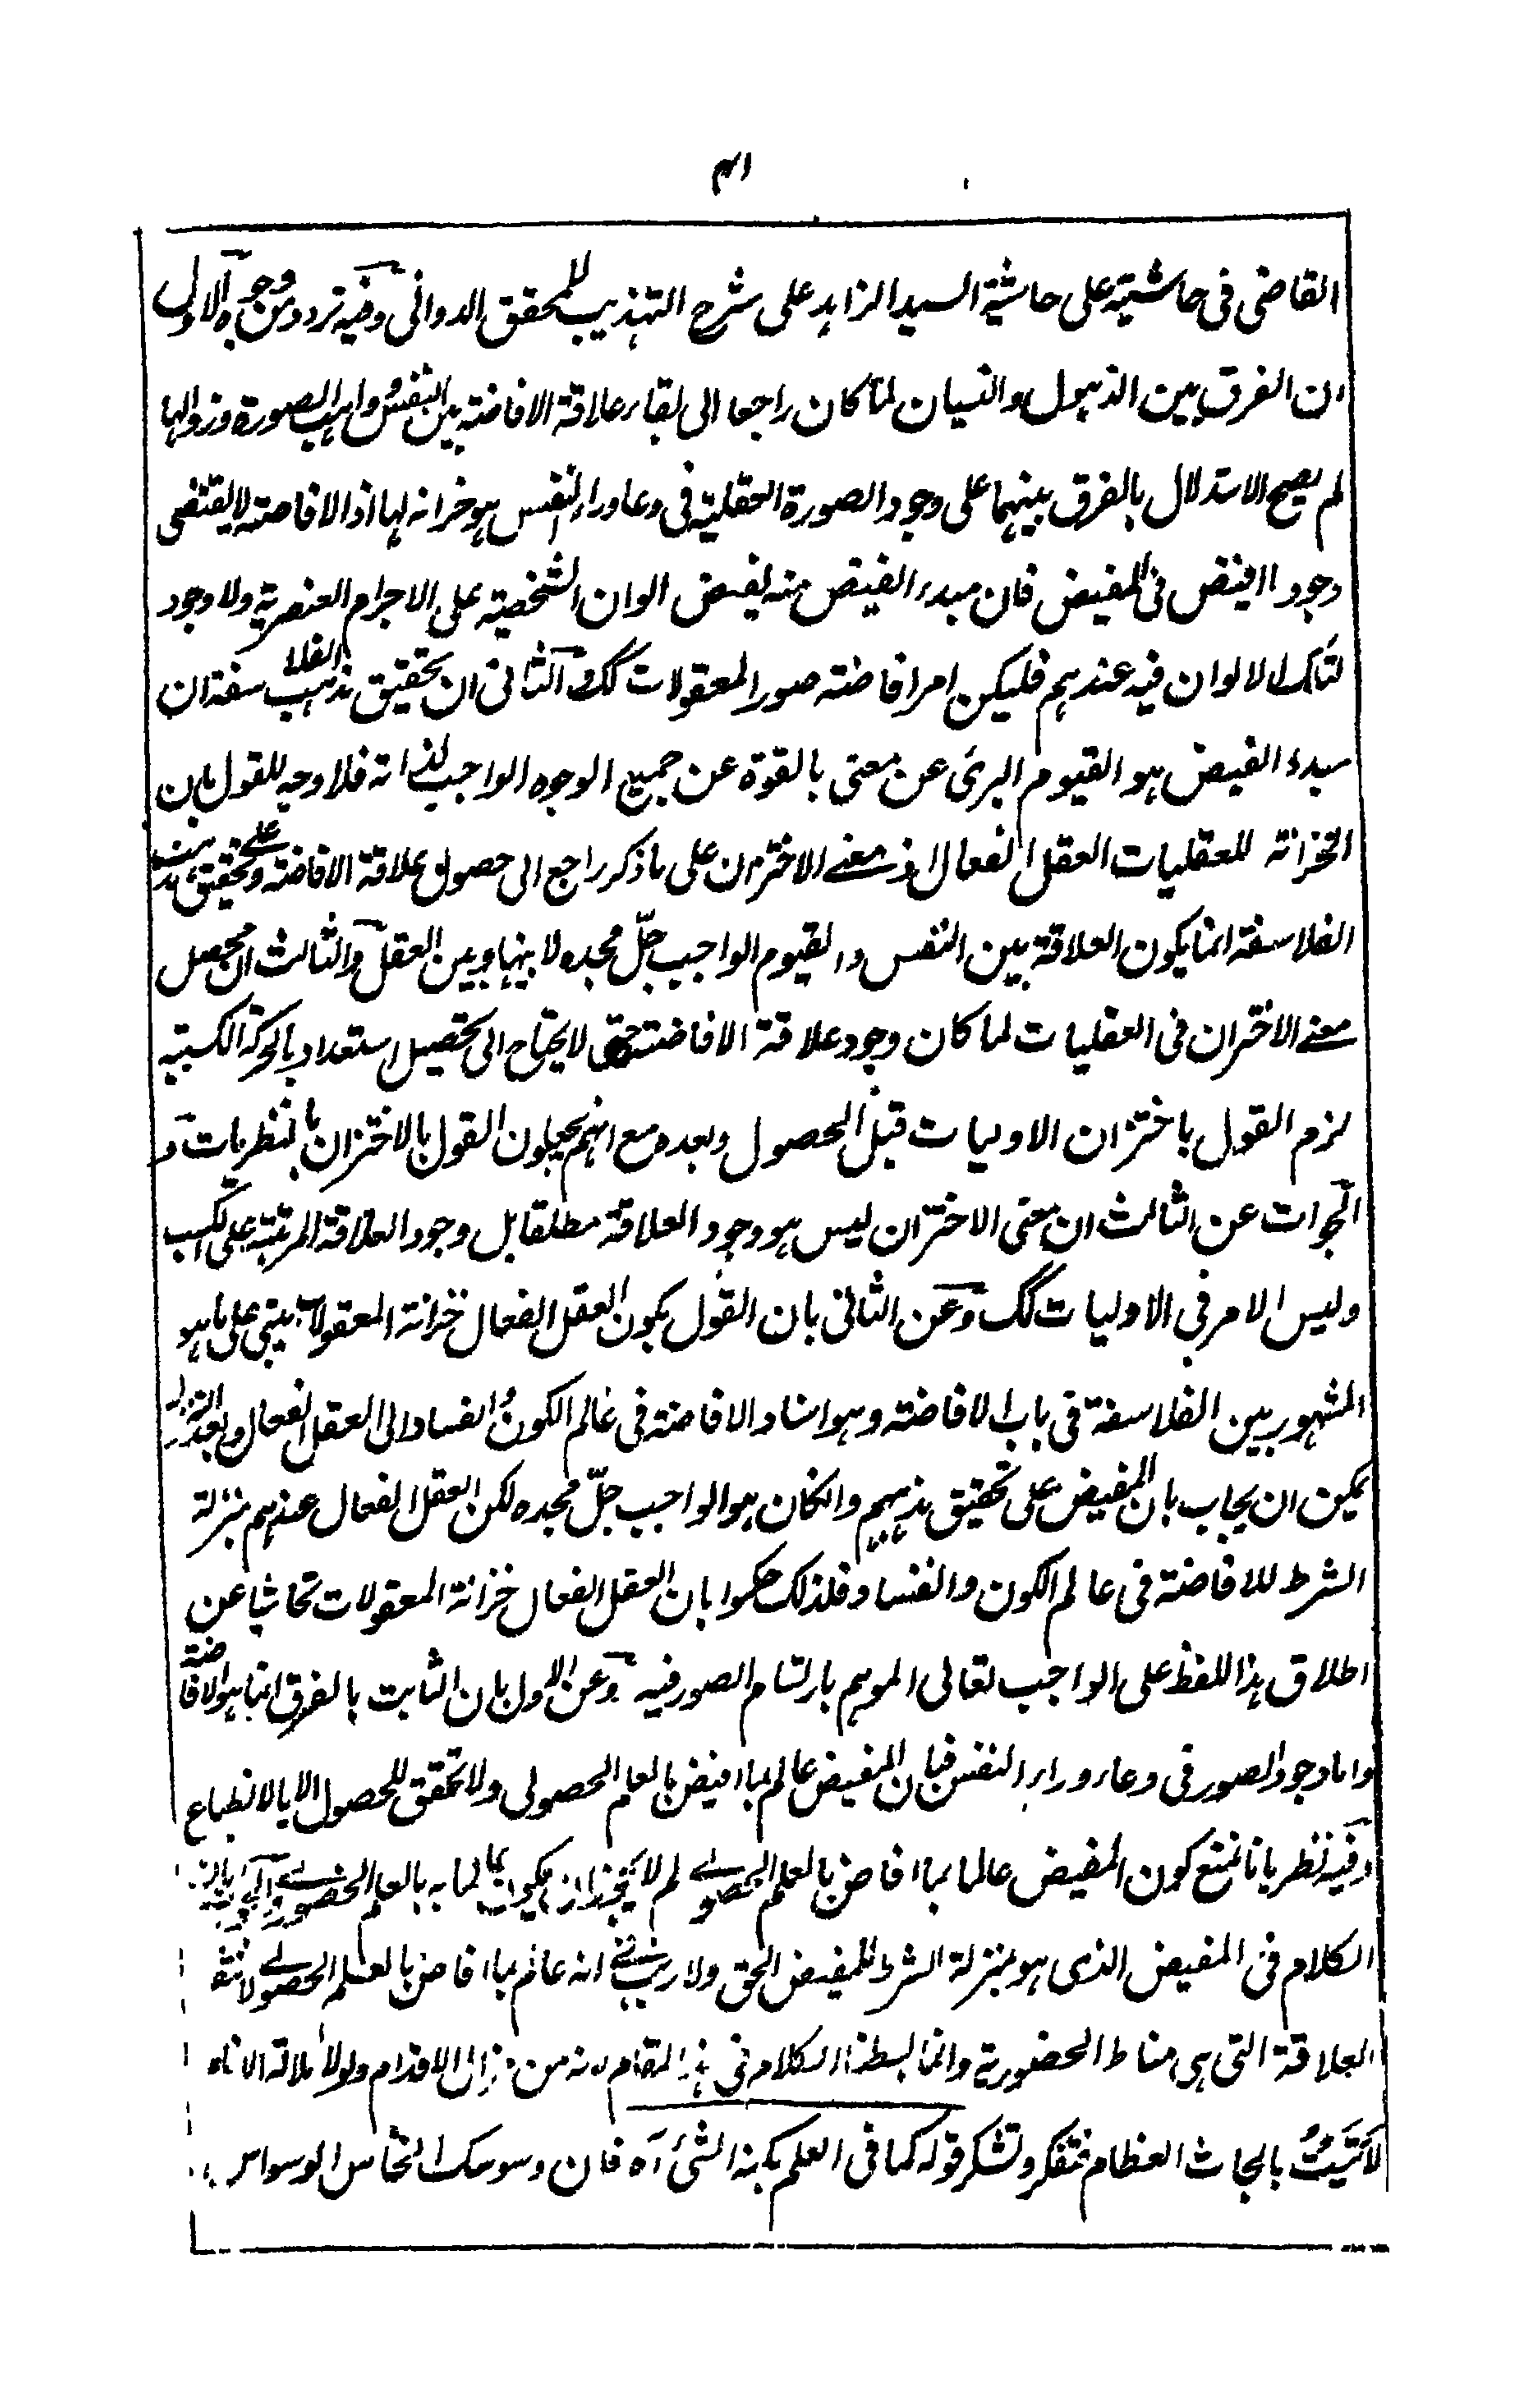 ٣١
القاضى فى حاشيته على حاشية السيد الزاہد على شرح التهذيب للمحقق الدوانى وفيه تردد من وجوه الاول
ان الفرق بين الذہول والنسيان لما كان راجعا الى بقاء علاقة الافاضة بين النفس واہب الصورة وزوالها
لم يصح الاستدلال بالفرق بينهما على وجود الصورة العقلية فى وعاء وراء النفس ہو خزانة لها اذ الافاضة لا يقتضى
وجود الفيض فى المفيض فان مبدء الفيض منه يفيض الوان الشخصية على الاجرام العنصرية ولا وجود
لتلك الالوان فيه عندہم فليكن امر افاضة صور المعقولات كك الثانى ان تحقيق مذہب الفلاسفة ان
مبدء الفيض ہو القيوم البرئ عن معنى بالقوة عن جميع الوجوه الواجب لذاته فلا وجه للقول بان
الخزانة للعقليات العقل الفعال اذ معنے الاختزان على ما ذكر راجع الى حصول علاقة الافاضة وعلے تحقيق مذہب
الفلاسفة انما يكون العلاقة بين النفس والقيوم الواجب جلّ مجده لا بينها وبين العقل والثالث ان محصل
معنے الاختزان فى العقليات لما كان وجود علاقة الافاضة حتى لا يحتاج الى تحصيل استعداد بالحركة الكسبية
لزم القول باختزان الاوليات قبل الحصول وبعده مع انهم يحيلون القول بالاختزان بالنظريات و
الجواب عن الثالث ان معنى الاختزان ليس ہو وجود العلاقة مطلقا بل وجود العلاقة المرتبة على الكسب
وليس الامر فى الاوليات كك وعن الثانى بان القول بكون العقل الفعال خزانة المعقولات يبتنى على ما ہو
المشهور بين الفلاسفة فى باب الافاضة وہو اسناد الافاضة فى عالم الكون والفساد الى العقل الفعال وبعد التنزل
يمكن ان يجاب بان المفيض على تحقيق مذہبهم وانكان ہو الواجب جلّ مجده لكن العقل الفعال عندہم بمنزلة
الشرط للافاضة فى عالم الكون والفساد فلذلك حكموا بان العقل الفعال خزانة المعقولات تحاشيا عن
اطلاق ہذا اللفظ على الواجب تعالى الموہم بارتسام الصور فيه وعن الاول بان الثابت بالفرق انما ہو الافاضة
واما وجود الصور فى وعاء وراء النفس فبان المفيض عالم بما افيض بالعلم الحصولى ولا تحقق للحصول الا بالانطباع
وفيه نظر بانا نمنع كون المفيض عالما بما افاض بالعلم الحصولے لم لا يجوز ان يكون عالما به بالعلم الحضورے والجواب بان
الكلام فى المفيض الذى ہو بمنزلة الشرط للمفيض الحق ولا ريب فى انه عالم بما افاض بالعلم الحصولے لانتفاء
العلاقة التى ہى مناط الحضورية وانما بسطنا الكلام فى ہذا المقام لانه من مزال الاقدام ولولا ملالة الاناء
لاتَيتُ بابحاث العظام فتفكر وتشكر قوله كما فى العلم بكنه الشئ آه فان وسوسك الخناس الوسواس